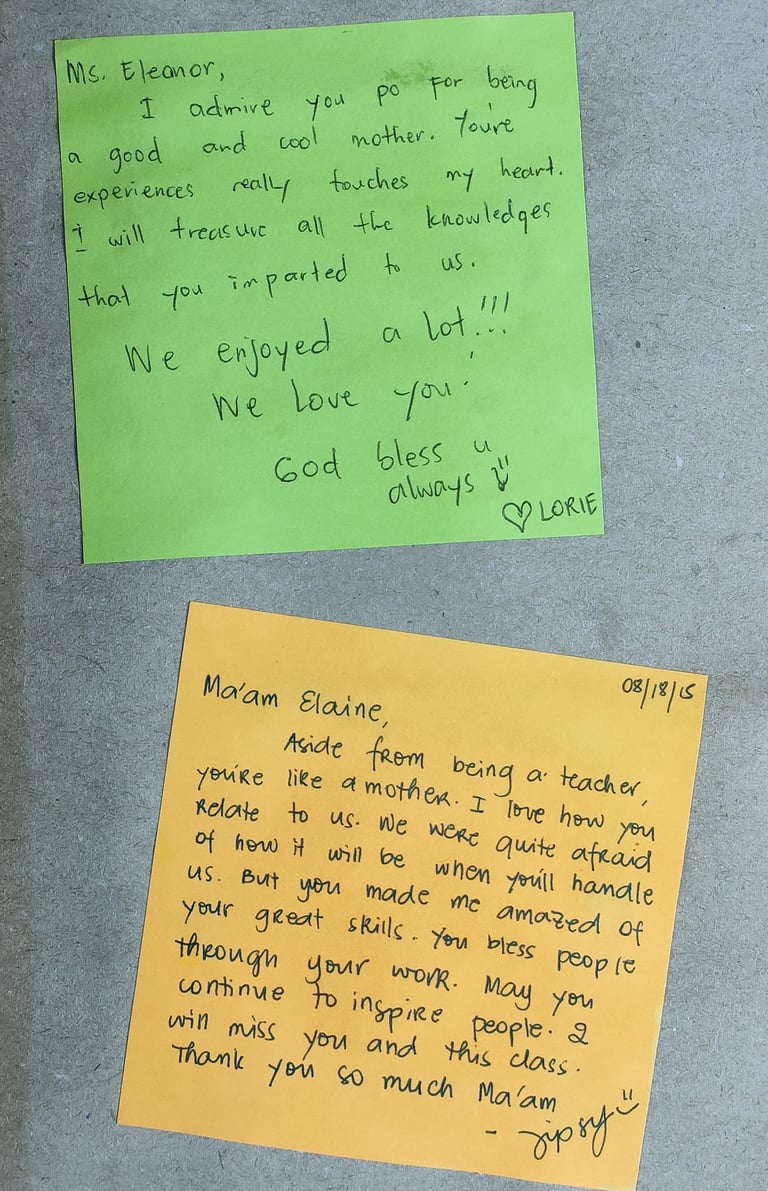 Ms. Eleanor,
I admire you po for being
a good and cool mother. You're
experiences really touches my heart.
I will treasure all the knowledges
that you imparted to us.
We enjoyed a lot!!!
We love you!
God bless u
always
♡ LORIE
08/18/15
Ma'am Elaine,
Aside from being a teacher,
you're like a mother. I love how you
relate to us. We were quite afraid
of how it will be when you'll handle
us. But you made me amazed of
your great skills. You bless people
through your work. May you
continue to inspire people. I
will miss you and this class.
Thank you so much Ma'am
- Jipsy